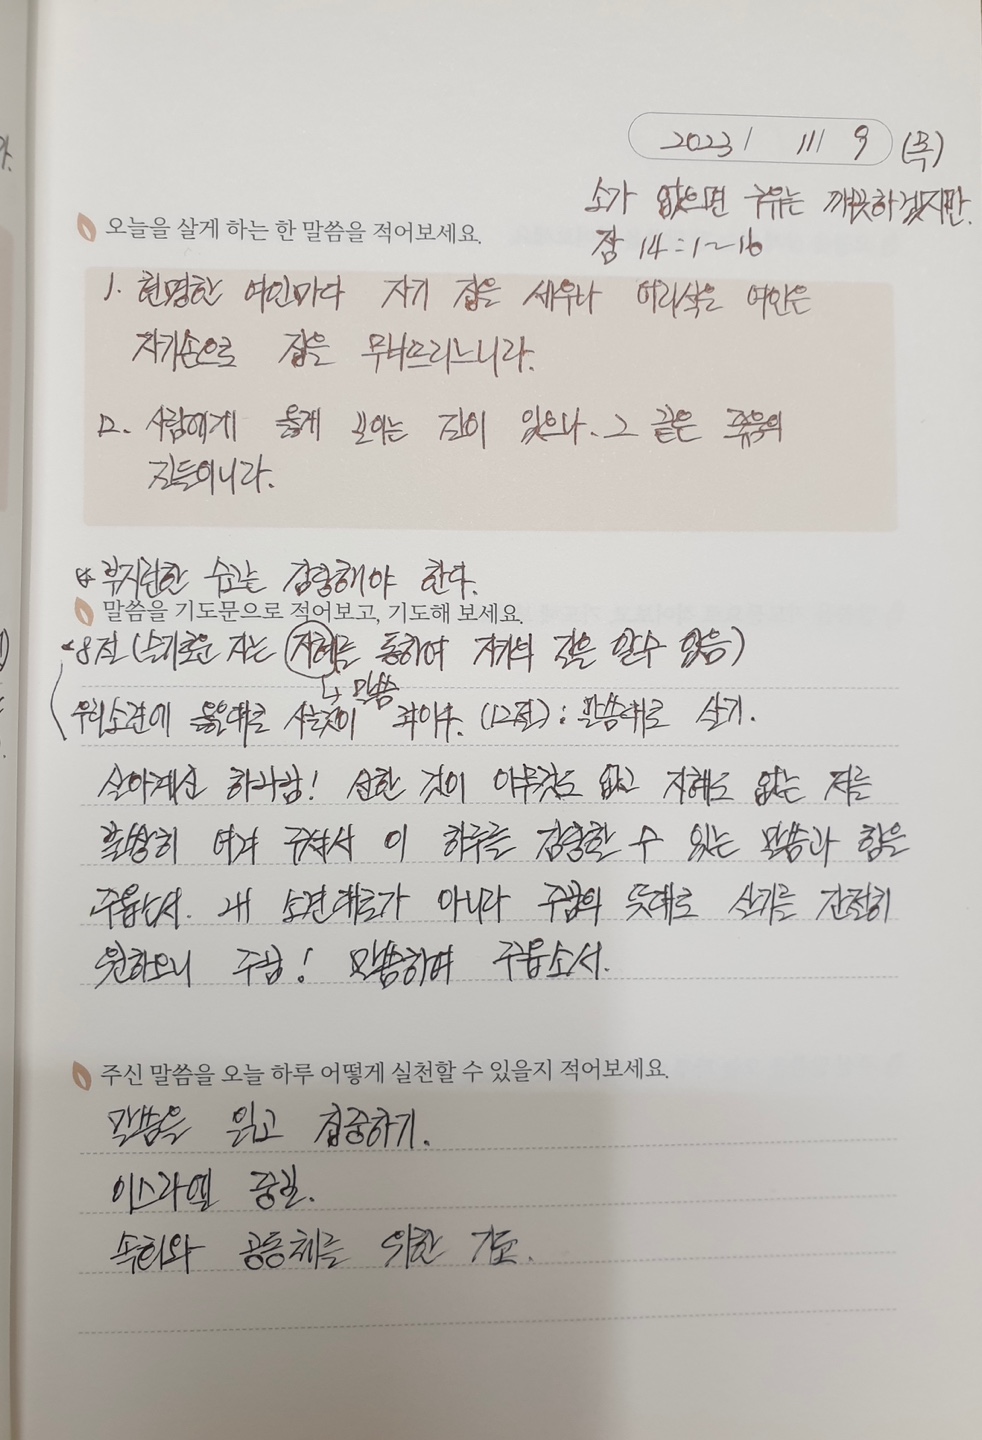 2023 / 11 / 9 (목)
소가 없으면 구유는 깨끗하겠지만.
오늘을 살게 하는 한 말씀을 적어보세요.
잠 14:1~16
1. 현명한 여인마다 자기 집을 세우나 어리석은 여인은
자기손으로 집을 무너뜨리느니라.
12. 사람에게 옳게 보이는 길이 있으나. 그 끝은 죽음의
길들이니라.
부지런한 수고는 감당해야 한다.
말씀을 기도문으로 적어보고, 기도해 보세요.
8절 (슬기로운 자는 지혜를 통하여 자기의 길을 알수 있음)
↳ 말씀
우리소견에 옳은대로 사는것이 (12절) : 말씀대로 살기.
살아계신 하나님! 선한 것이 아무것도 없고 지혜도 없는 저를
불쌍히 여겨 주셔서 이 하루를 감당할 수 있는 말씀과 힘을
주옵소서. 내 소견대로가 아니라 주님의 뜻대로 살기를 간절히
원하오니 주님! 말씀하여 주옵소서.
주신 말씀을 오늘 하루 어떻게 실천할 수 있을지 적어보세요.
말씀을 읽고 집중하기.
이스라엘 중보.
속회와 공동체를 위한 기도.